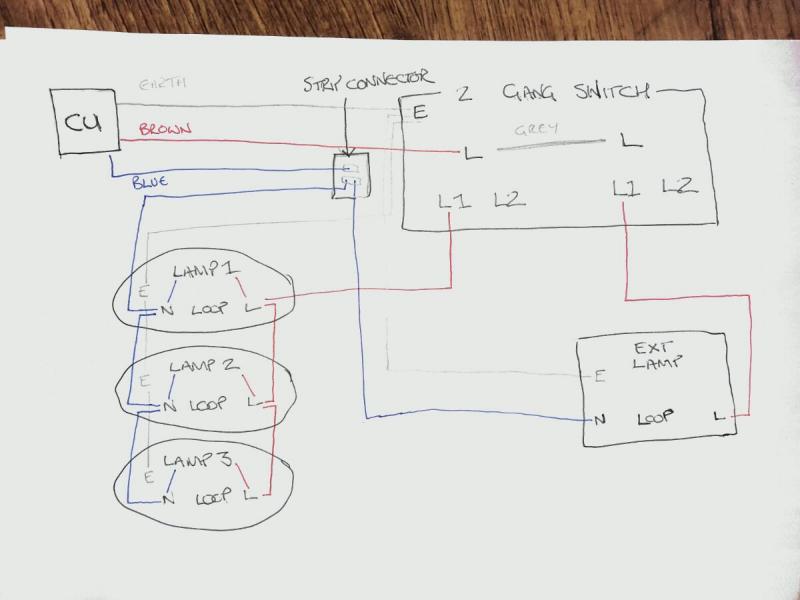 EARTH
STRIP CONNECTOR
2 GANG SWITCH
E
CU
BROWN
GREY
L L
BLUE
L1 L2 L1 L2
LAMP 1
E
N LOOP L
EXT
LAMP
LAMP 2
E
E
N LOOP L
N LOOP L
LAMP 3
E
N LOOP L